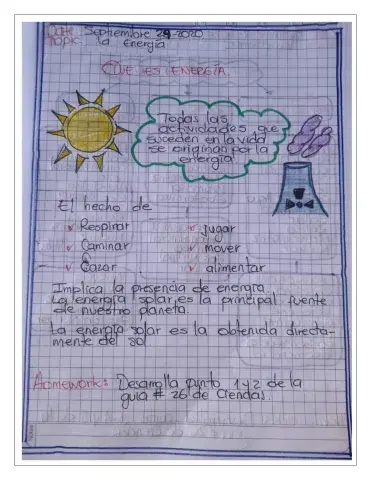 Date: Septiembre 29-2020
Topic: la Energia
QUE ES ENERGÍA.
Todas las
actividades que
suceden en la vida
se originan por la
energia
El hecho de
Respirar
Caminar
Cazar
jugar
mover
alimentar
Implica la presencia de energia
La energía solar, es la principal fuente
de nuestro planeta.
La energía solar es la obtenida directa-
mente del sol
Homework: Desarrolla punto 1 y 2 de la
guia # 26 de Ciencias.